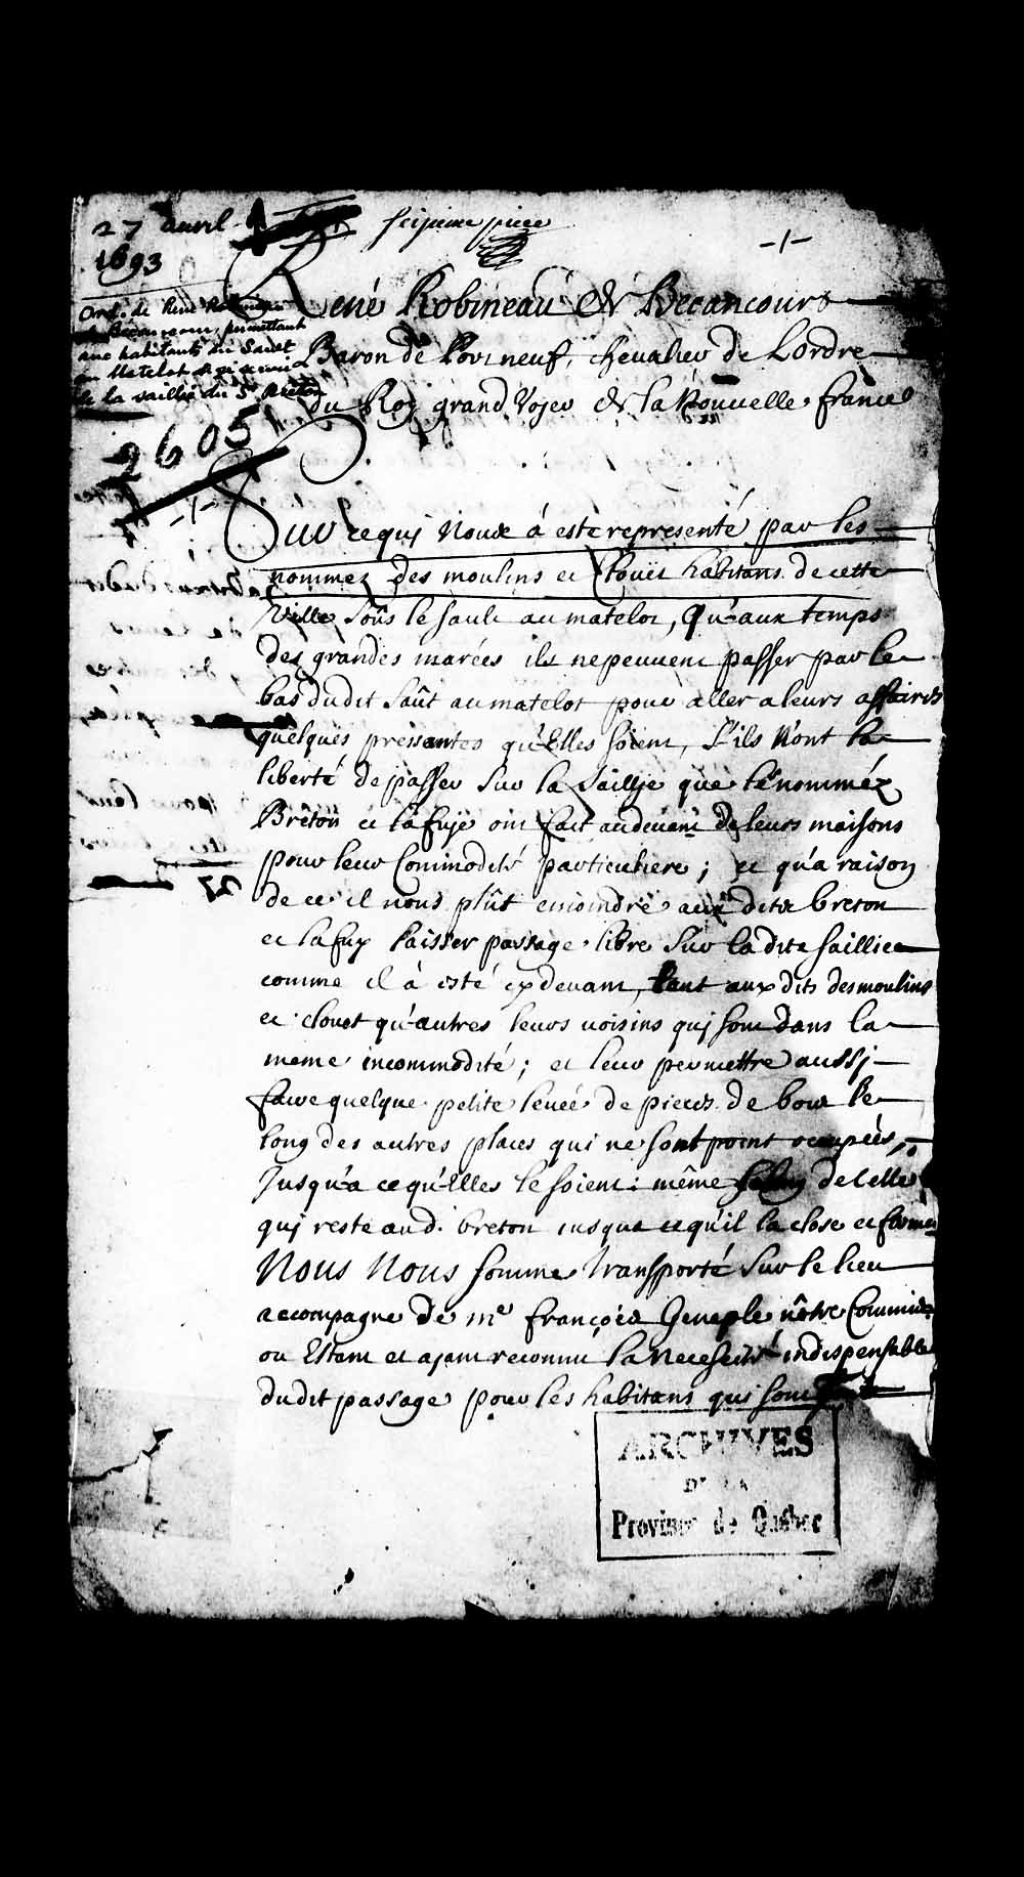 27 auril
1693
seizieme piece
-1-
Ord. de René Robineau
de Bécancour, permettant
aux habitants du Sault
au Matelot
de la saillie du Sr Breton
2605
-1-
René Robineau de Becancourt
Baron de Portneuf, chevalier de Lordre
du Roy grand Voyer de la Nouuelle france
Sur ce qui Nous á esté representé par les
nommez des moulins et Clouët habitans de cette
Ville Soûs le sault au matelot, Qu'aux temps
des grandes marées ils ne peuuent passer par le
bas dudit Saût au matelot pour aller a leurs affaires
quelques pressantes qu'Elles soient, S'ils N'ont la
liberté de passer Sur la Saillie que lés nomméz
Brêton et lafuye ont fait audeuant de leurs maisons
pour leur Commodité particuliere; et qu'a raison
de ce il nous plût enioindre aux dits breton
et lafuy laisser passage libre Sur ladite saillie
comme il à esté cy deuant, tant aux dits desmoulins
et clouet qu'autres leurs uoisins qui sont dans la
meme incommodité; et leur permettre aussi
faire quelque petite leueé de pieces de bois le
long des autres places qui ne sont point occupeés,
Jusqu'a ce qu'Elles le soient: même de Celle
qui reste aud. breton iusqua ce qu'il la close et ferme
Nous Nous somme transporté Sur le lieu
accompagné de me françois Genaple nôtre Commis
ou Estant et ajant reconnu la Necessité indispensable
dudit passage pour les habitans qui sont
27
ARCHIVES
DE LA
Province de Québec